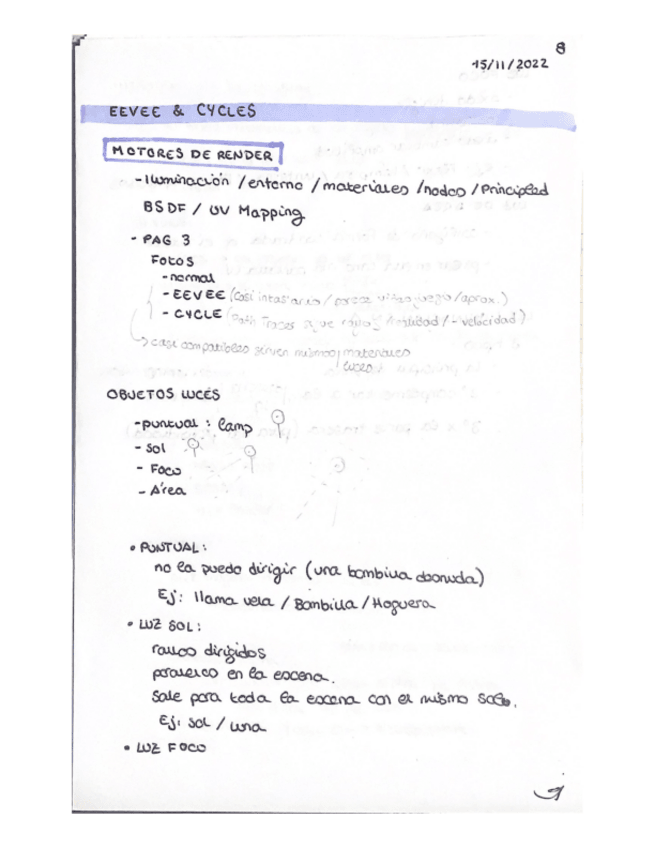 8
15/11/2022
EEVEE & CYCLES
MOTORES DE RENDER
- Iluminación / entorno / materiales / nodos / Principled
BSDF / UV Mapping
- PAG 3
FOTOS
- normal
- EEVEE (Casi instantáneo / parece videojuego / aprox.)
- CYCLE (Path Traces sigue rayos / realidad / - velocidad)
→ casi compatibles sirven mismos materiales
luces
OBJETOS LUCES
- puntual : lamp
- Sol
- Foco
- Área
• PUNTUAL:
no la puedo dirigir (una bombilla desnuda)
Ej: llama vela / Bombilla / Hoguera
• LUZ SOL:
rayos dirigidos
paralelo en la escena.
Sale para toda la escena con el mismo
Ej: sol / luna
• LUZ FOCO